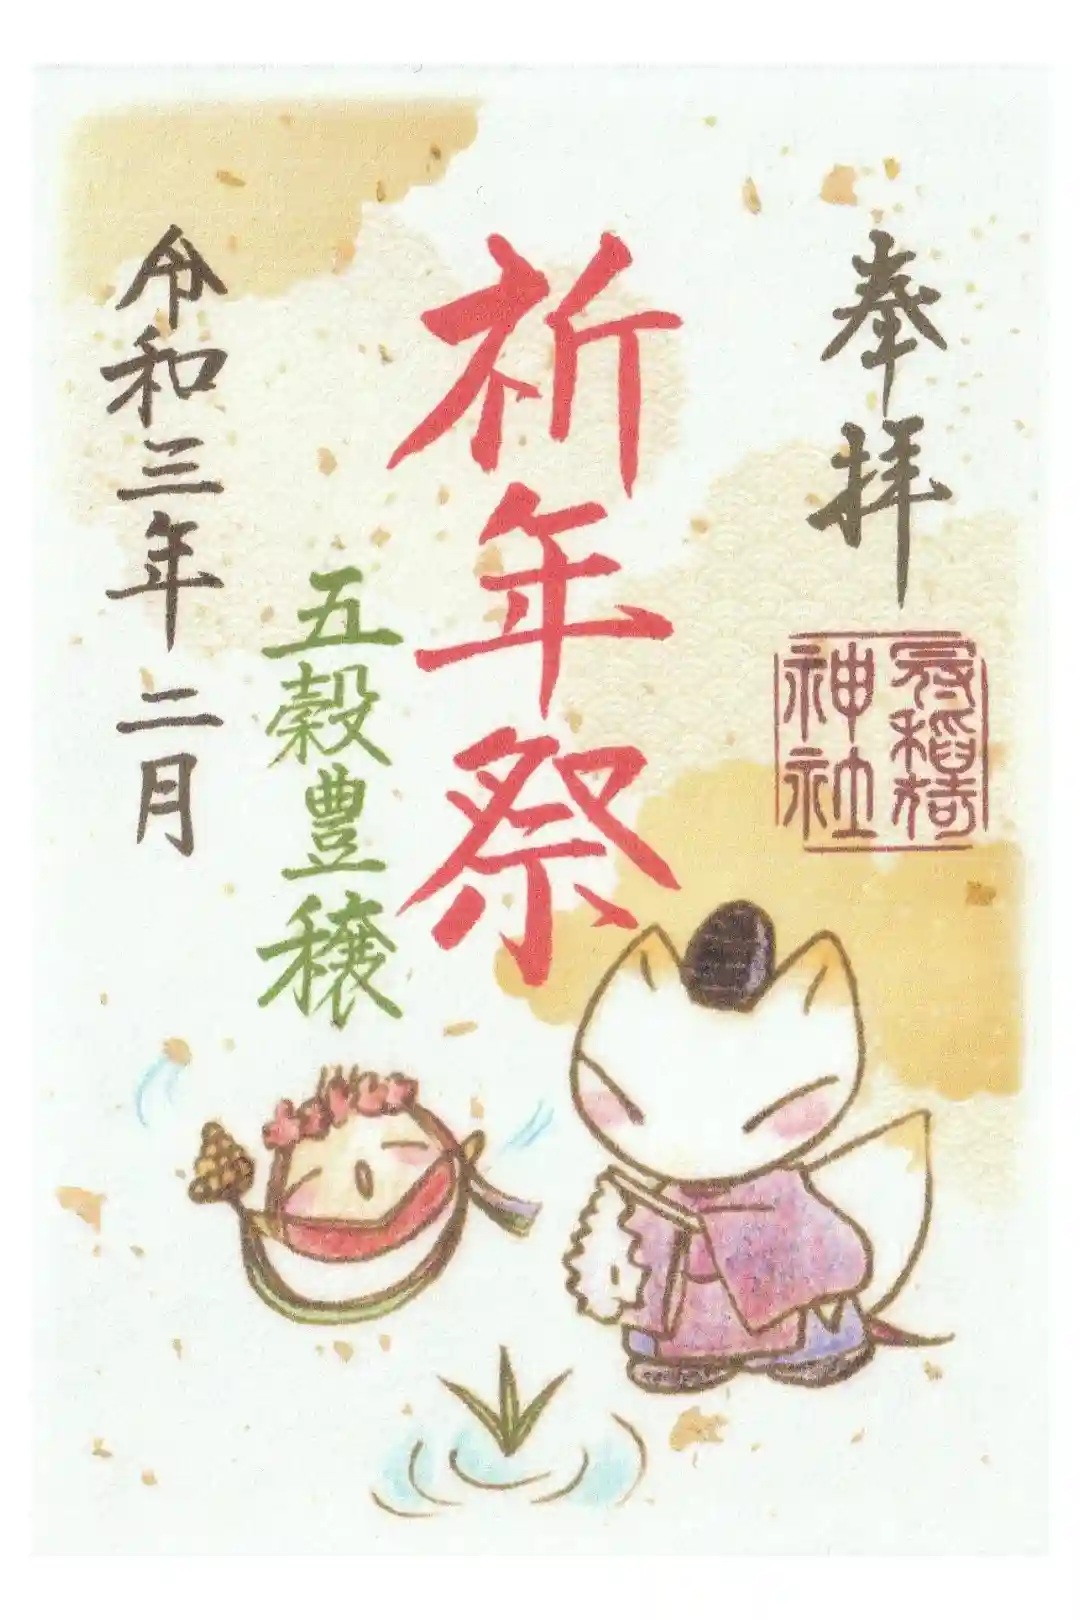 奉拝
冠稲荷
神社
祈年祭
五穀豊穣
令和三年二月